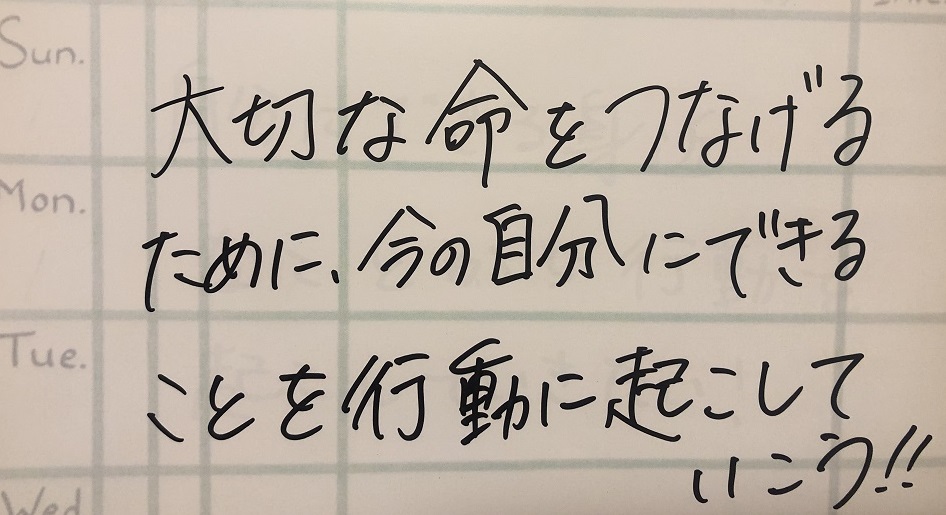 Sun.
大切な命をつなげる
Mon.
ために、今の自分にできる
Tue.
ことを行動に起こして
いこう!!
Wed